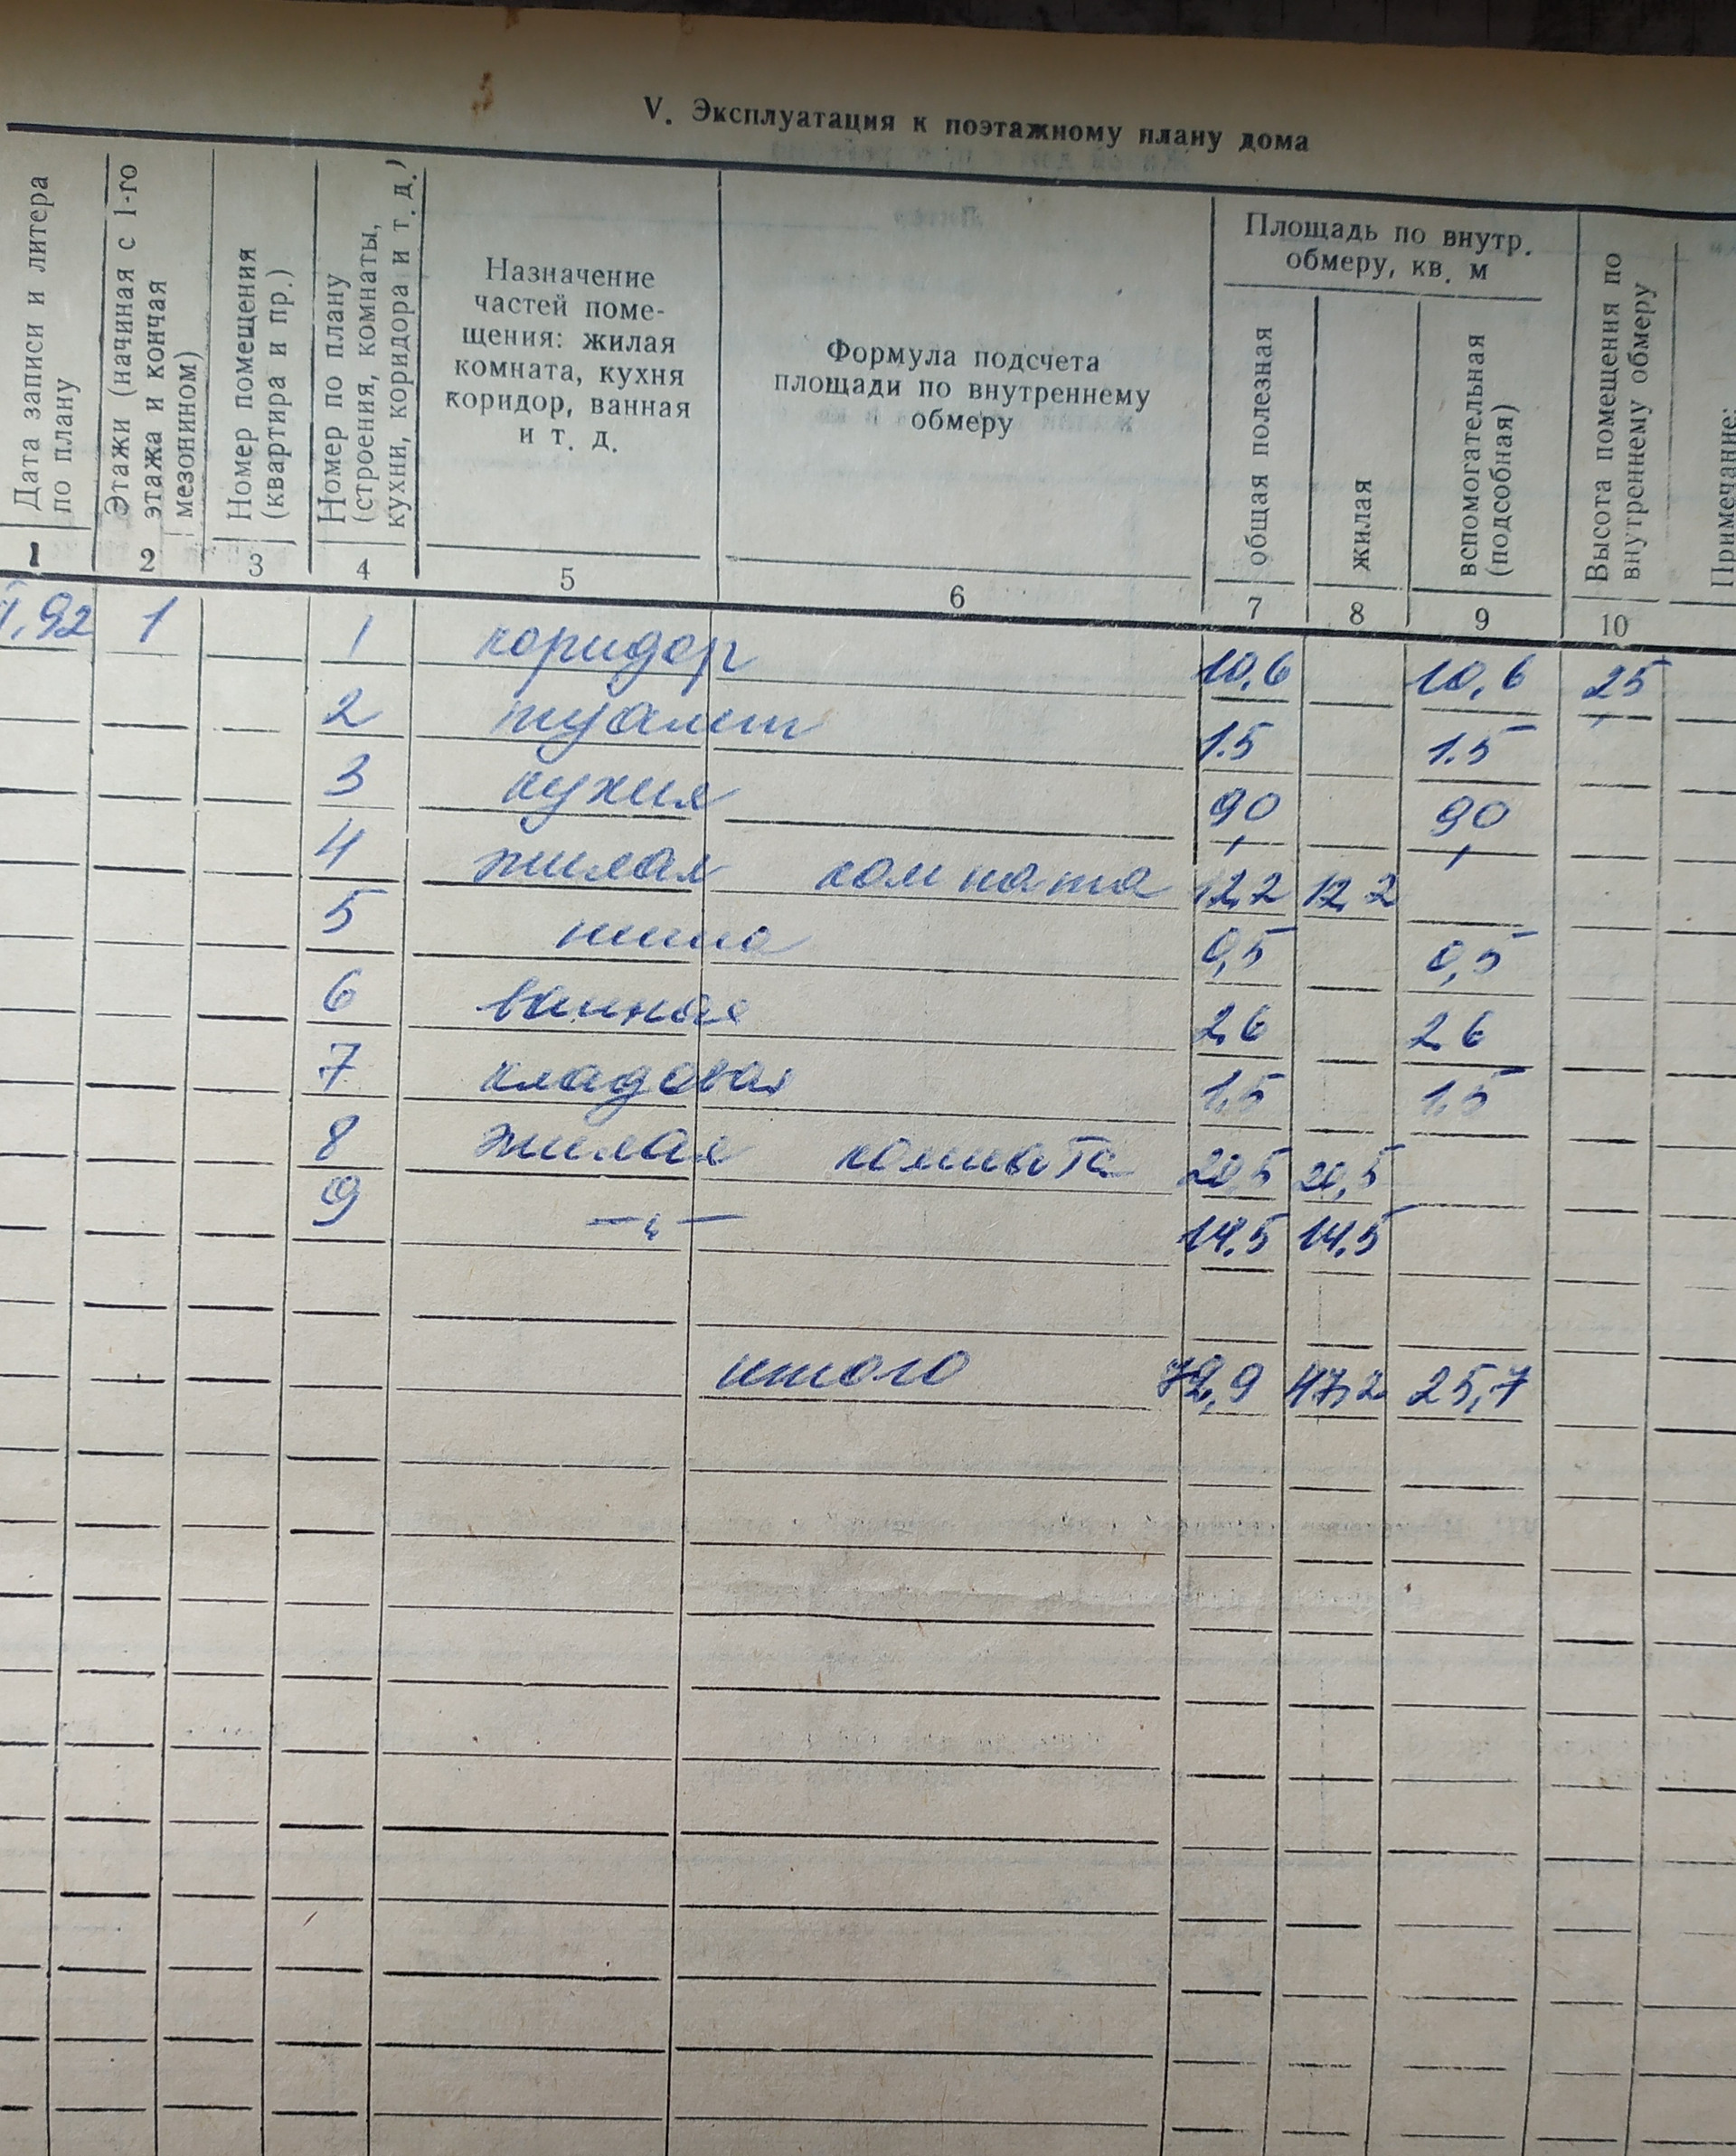 V. Эксплуатация к поэтажному плану дома
Дата записи и литера
по плану
Этажи (начиная с 1-го
этажа и кончая
мезонином)
Номер помещения
(квартира и пр.)
Номер по плану
(строения, комнаты,
кухни, коридора и т. д.)
Назначение
частей поме-
щения: жилая
комната, кухня
коридор, ванная
и т. д.
Формула подсчета
площади по внутреннему
обмеру
Площадь по внутр.
обмеру, кв. м
общая полезная
жилая
вспомогательная
(подсобная)
Высота помещения по
внутреннему обмеру
Примечание:
1 2 3 4 5 6 7 8 9 10
92 1 1 коридор 10,6 10,6 2,5
2 туалет 1.5 1.5
3 кухня 9,0 9,0
4 жилая комната 12,2 12,2
5 ниша 0,5 0,5
6 ванная 2,6 2,6
7 кладовая 1,5 1,5
8 жилая комната 20,5 20,5
9 —"— 14.5 14.5
итого 72,9 47,2 25,7